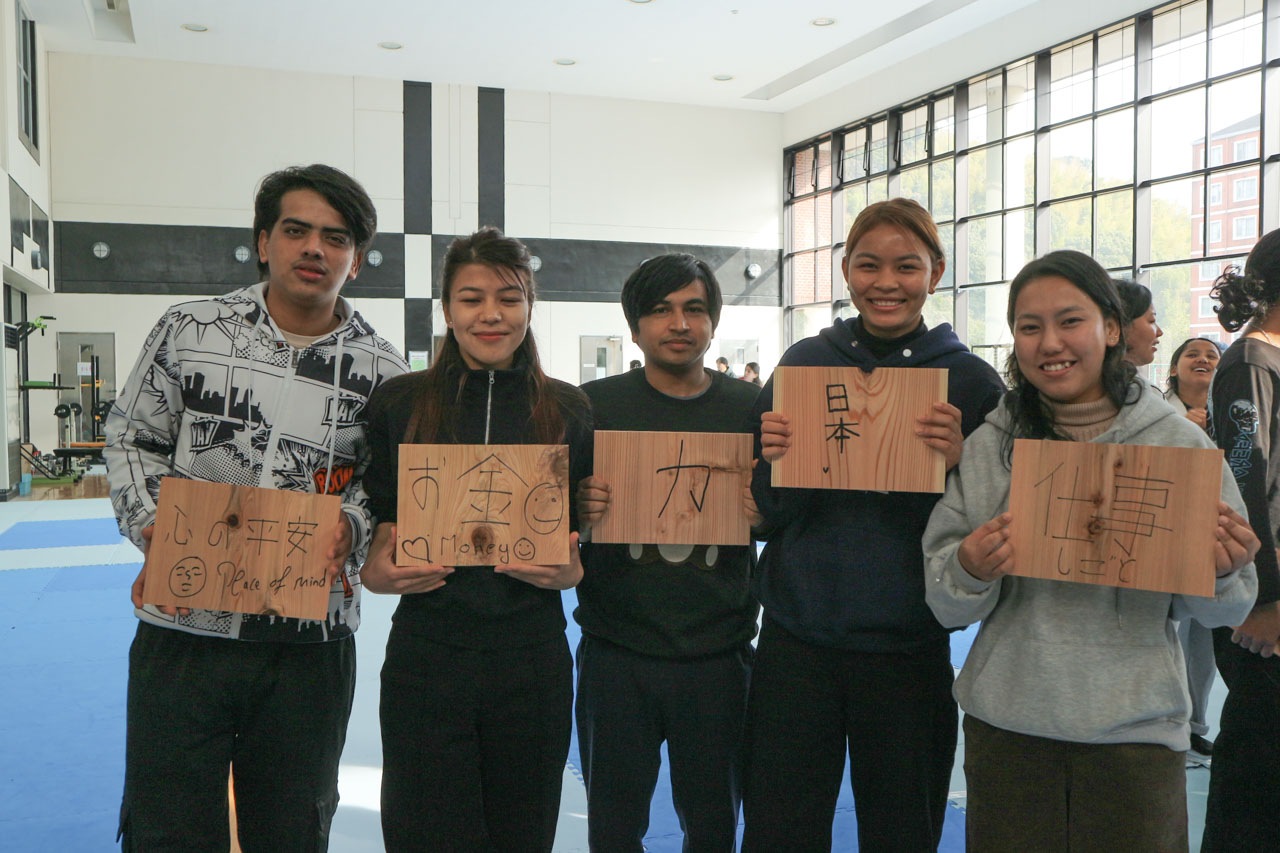 心の平安
Place of mind
お金
Money
力
日本
仕事
しごと
BOOM